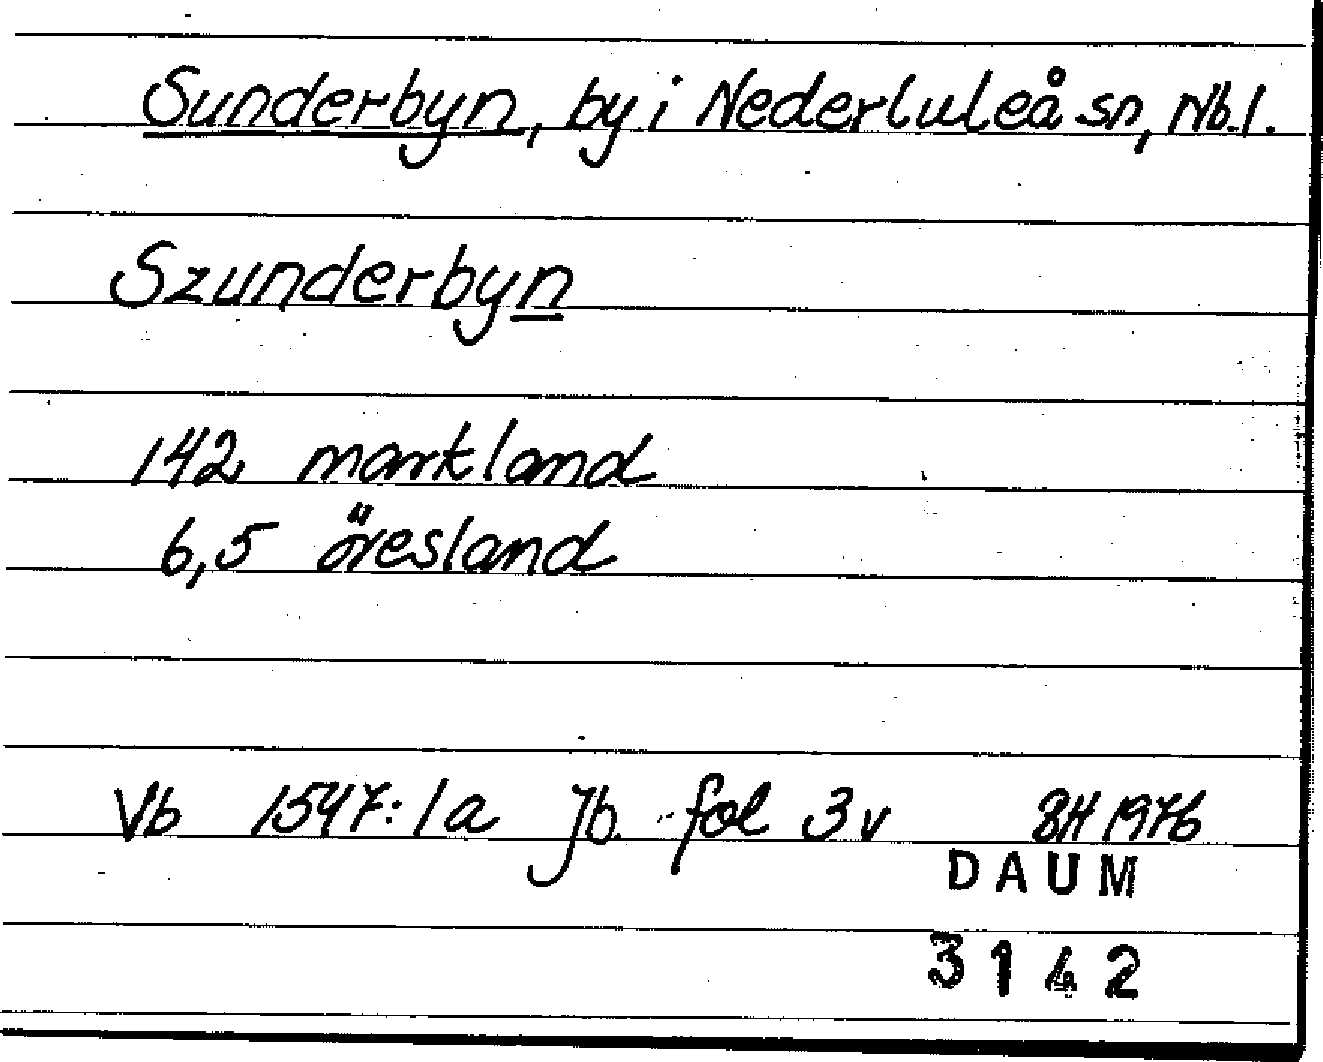 Sunderbyn, by i Nederluleå sn, Nb.l.
Szunderbyn
142 markland
6,5 öresland
Vb 1547:1a Jb fol 3v BH 1976
DAUM
3142